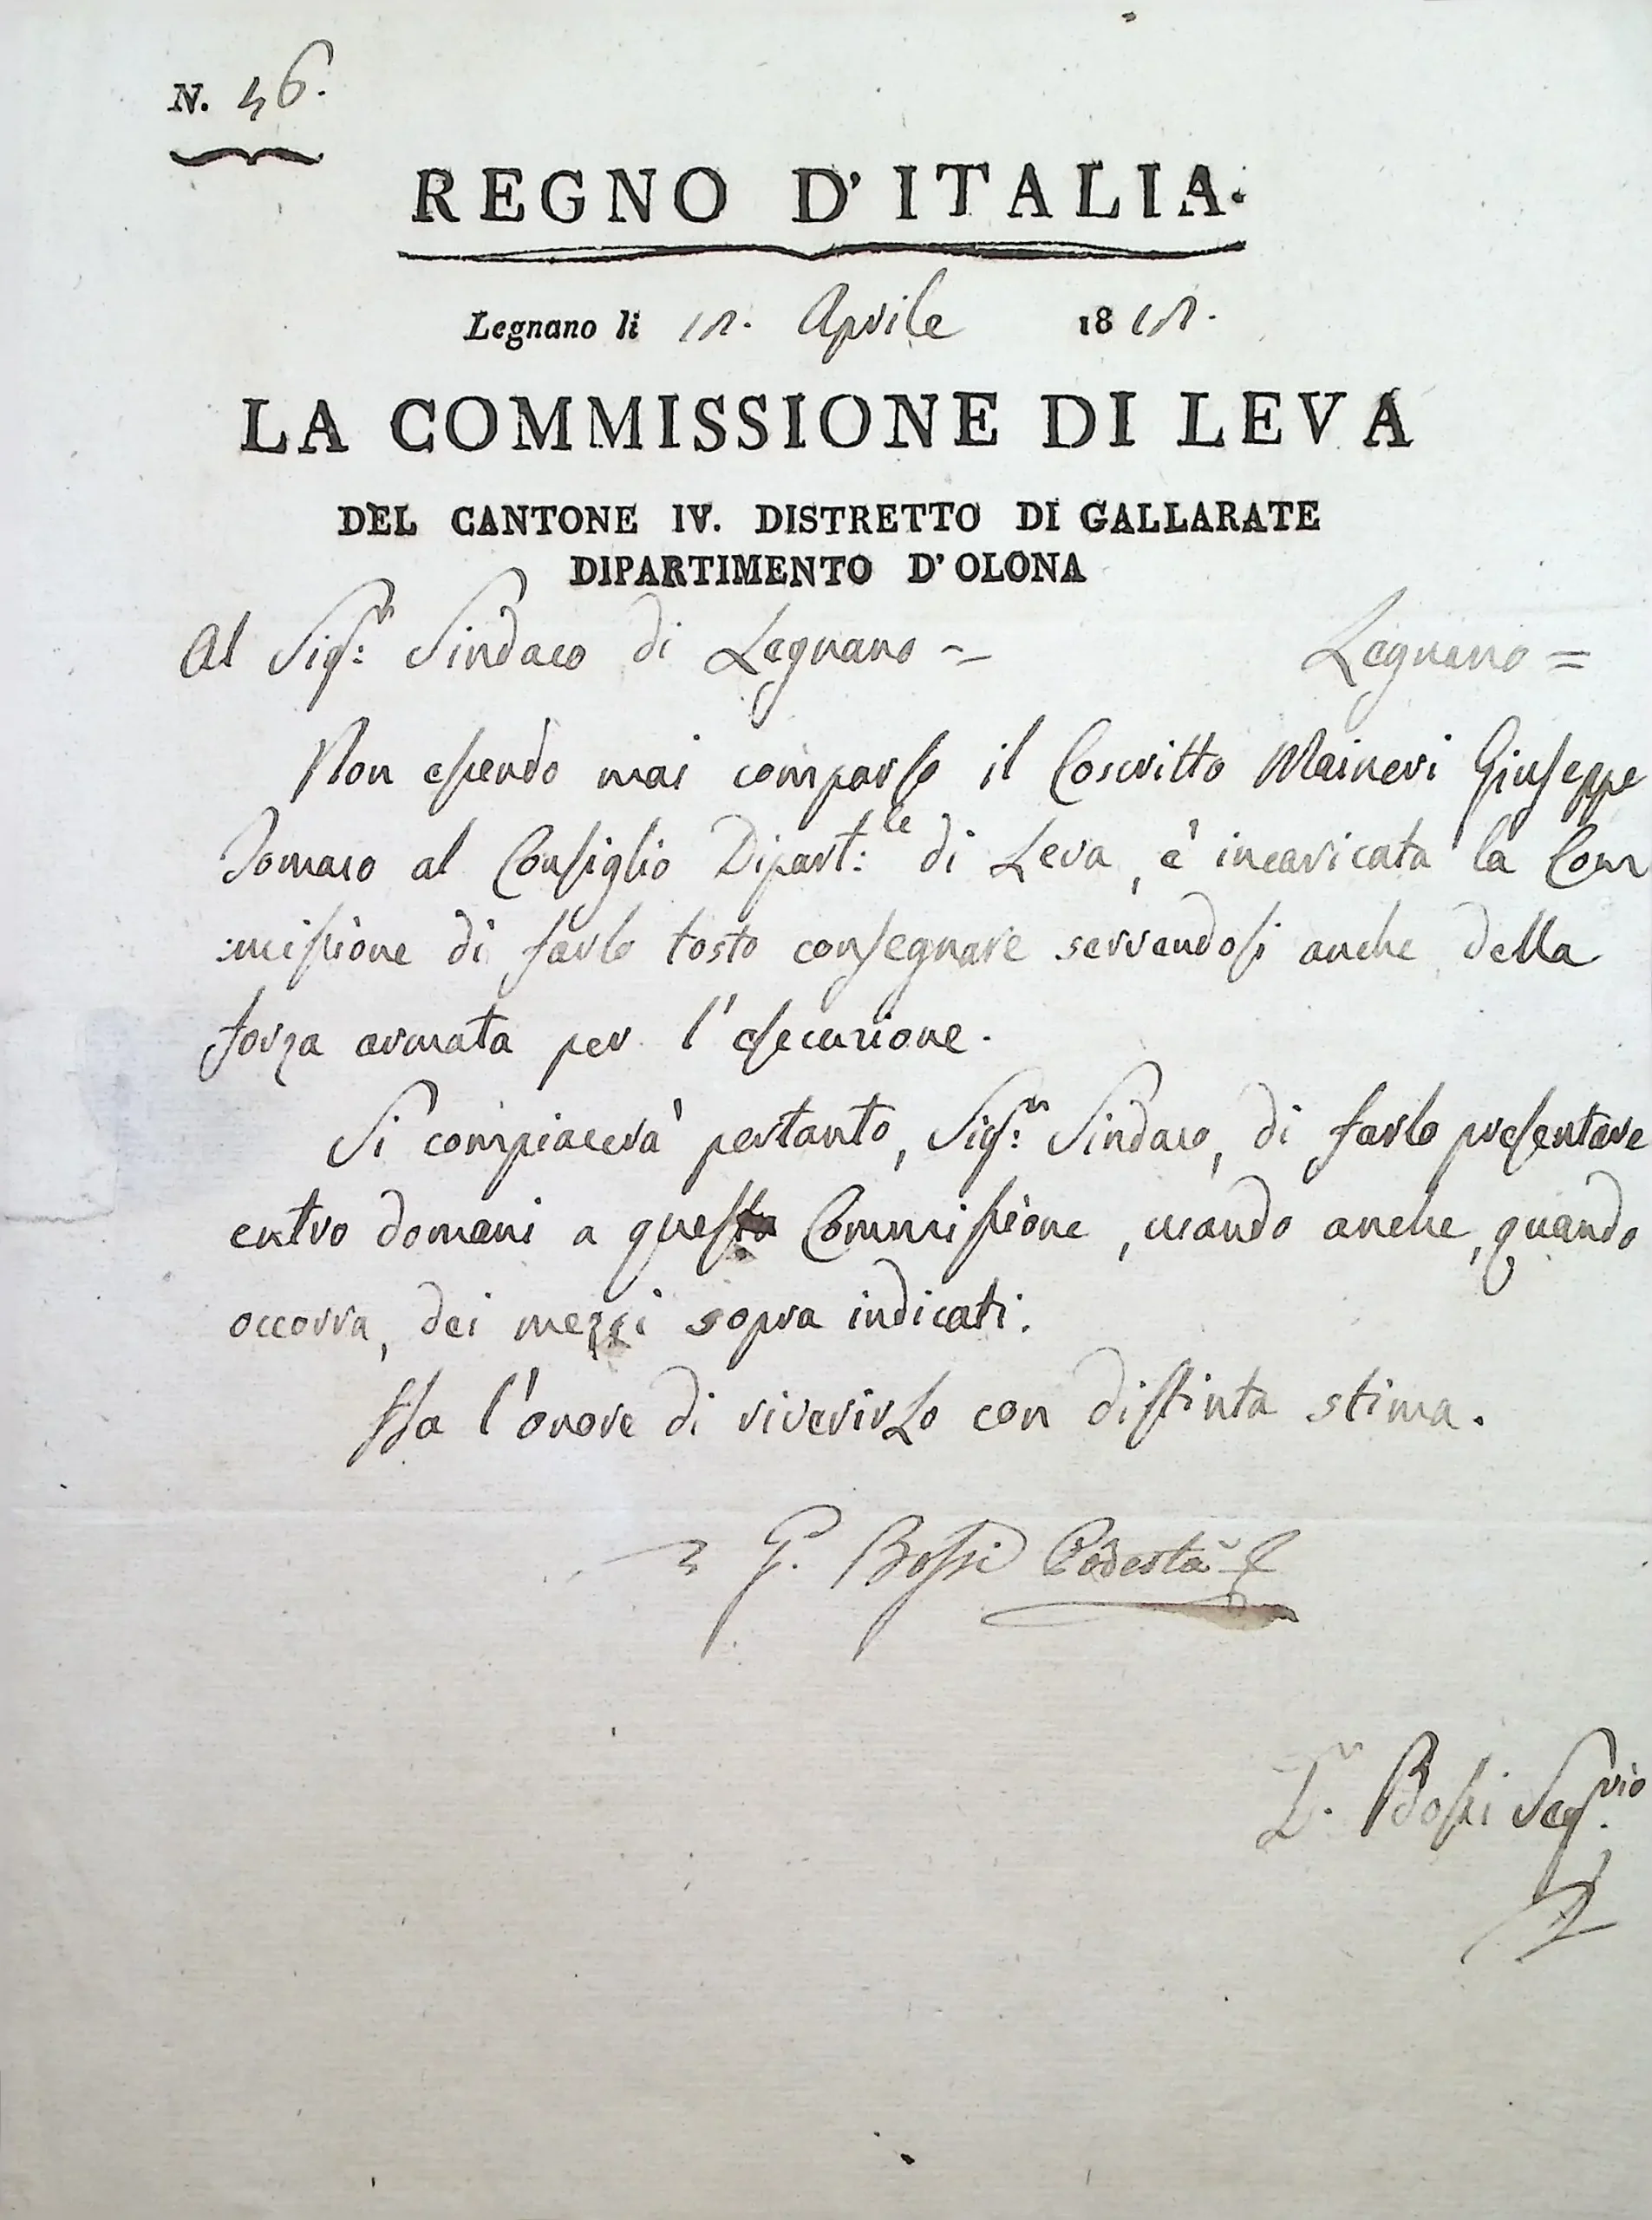 N. 46.
REGNO D'ITALIA.
Legnano li 12. Aprile 1812.
LA COMMISSIONE DI LEVA
DEL CANTONE IV. DISTRETTO DI GALLARATE
DIPARTIMENTO D'OLONA
Al Sigr: Sindaco di Legnano Legnano =
Non essendo mai comparso il Coscritto Maineri Giuseppe
Tomaso al Consiglio Dipart:le di Leva, è incaricata la Com
:missione di farlo tosto consegnare servendosi anche della
forza armata per l'esecuzione.
Si compiacerà pertanto, Sigr: Sindaco, di farlo presentare
entro domani a questa Commissione, usando anche, quando
occorra, dei mezzi sopra indicati.
Ha l'onore di riverirLo con distinta stima.
G. Bossi Podestà
Bossi Segrio.